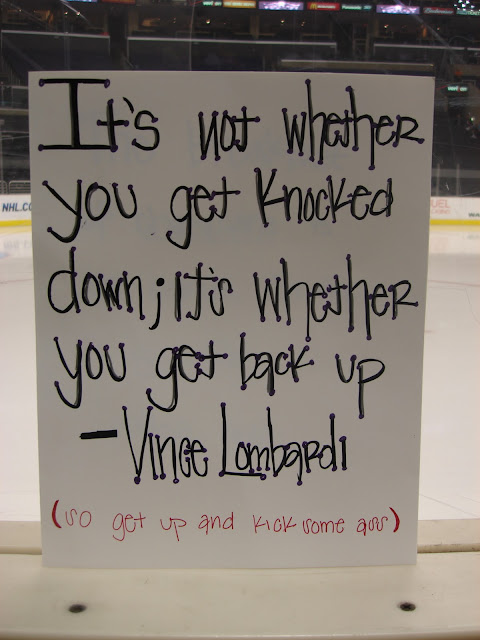 It's not whether
you get knocked
down; It's whether
you get back up
- Vince Lombardi
(so get up and kick some ass)
NHL.CO